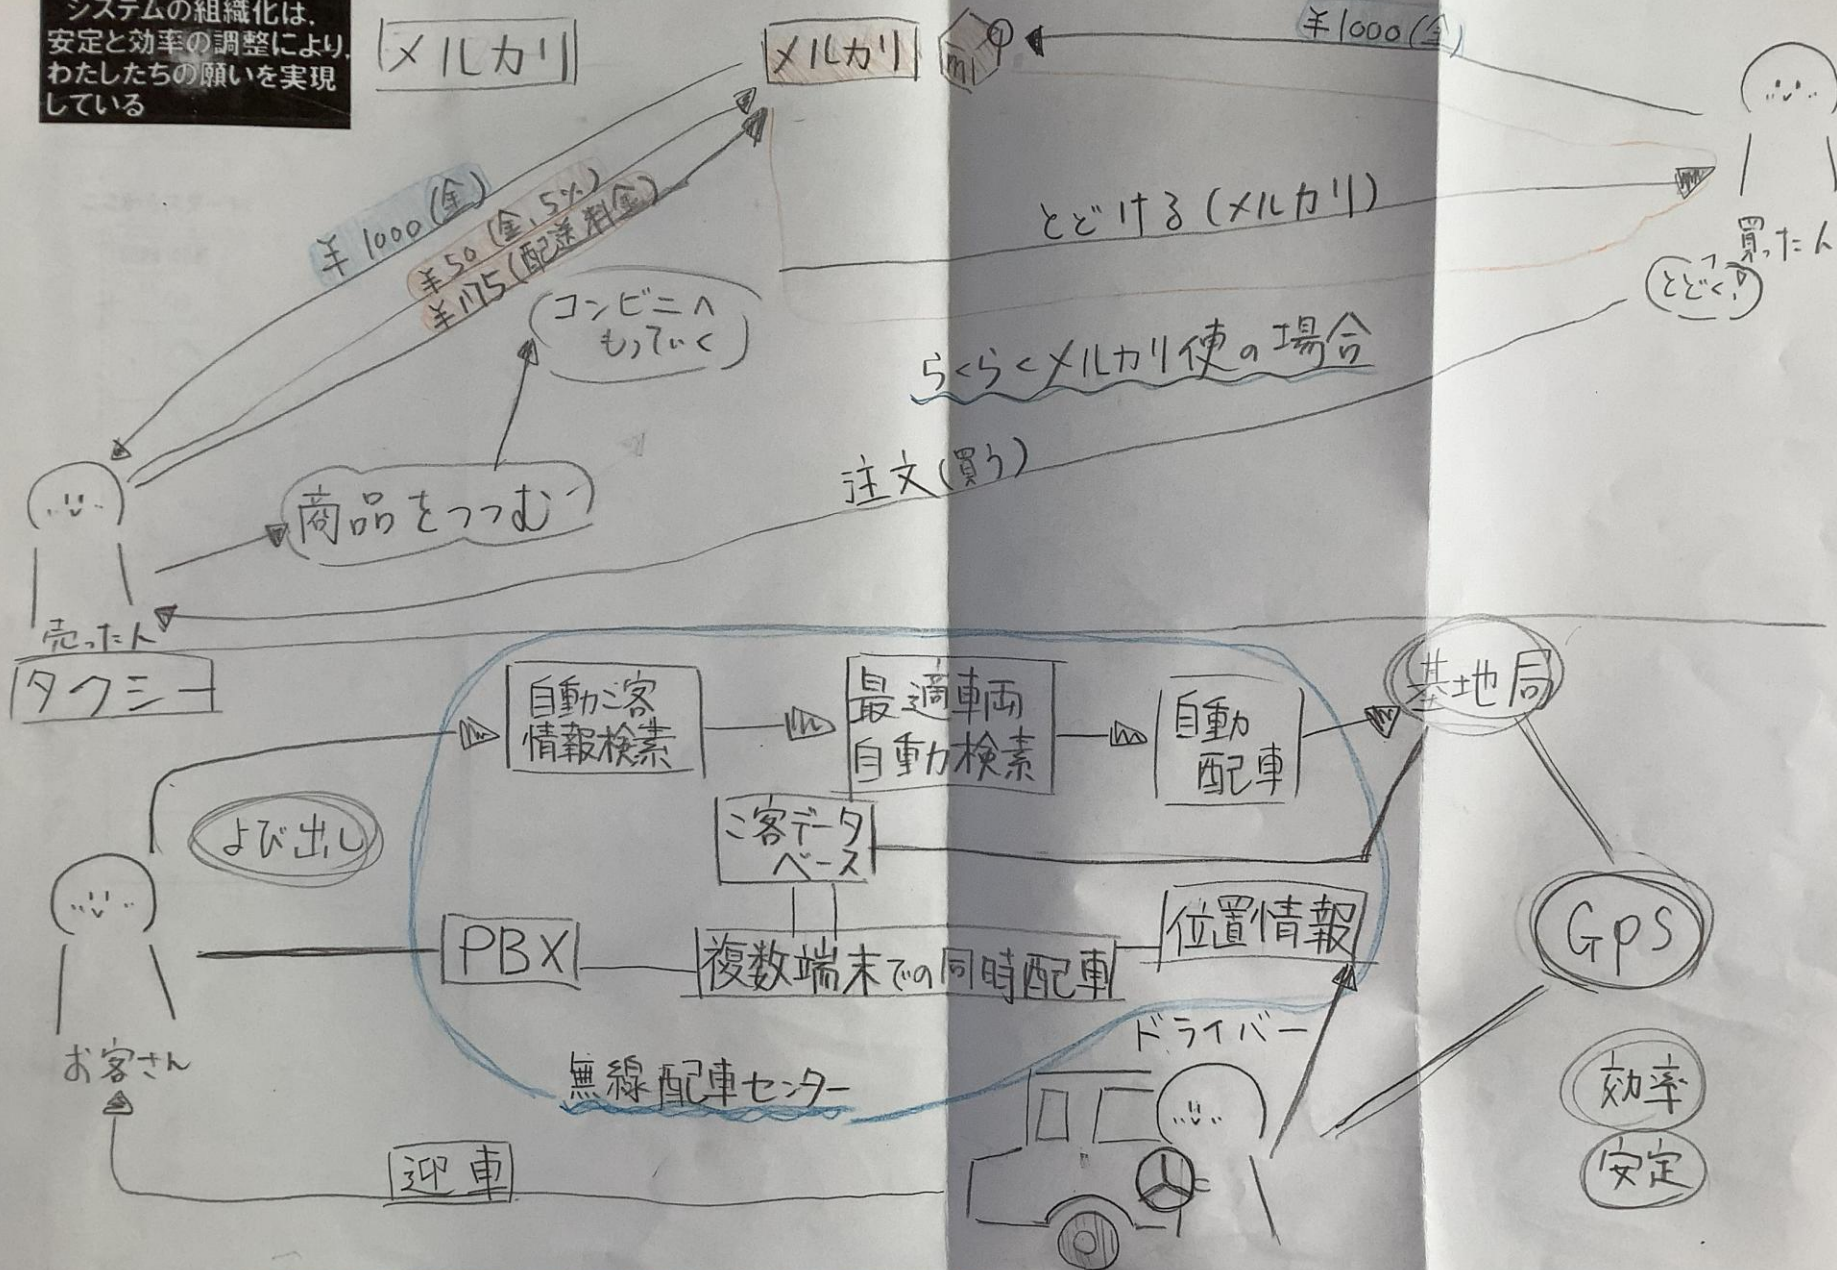 システムの組織化は、
安定と効率の調整により、
わたしたちの願いを実現
している
メルカリ
メルカリ
m
¥1000(金)
¥1000(金)
¥50(金、5%)
¥175(配送料金)
とどける(メルカリ)
買った人
とどく!
コンビニへ
もっていく
らくらくメルカリ便の場合
注文(買う)
商品をつつむ
売った人
タクシー
自動こ客
情報検索
最適車両
自動検索
自動
配車
基地局
よび出し
こ客データ
ベース
PBX
複数端末での同時配車
位置情報
GPS
お客さん
無線配車センター
ドライバー
効率
安定
迎車